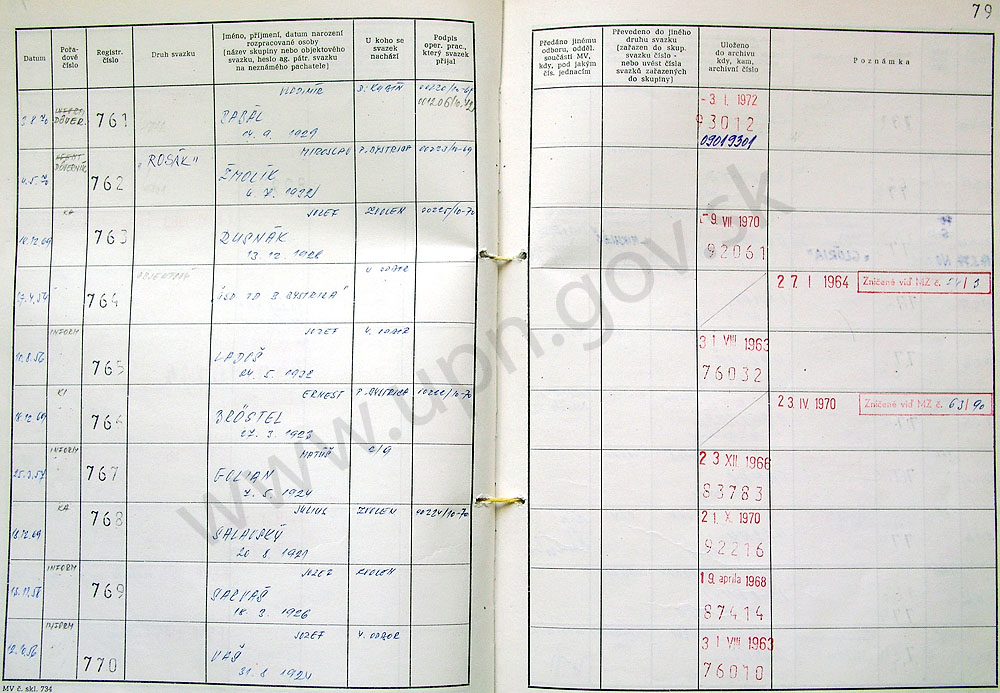 79
Datum
Pořadové číslo
Registr. číslo
Druh svazku
Jméno, příjmení, datum narození
rozpracované osoby
(název skupiny nebo objektového
svazku, heslo ag. pátr. svazku
na neznámého pachatele)
U koho se
svazek
nachází
Podpis
oper. prac.,
který svazek
přijal
Předáno jinému
odboru, odděl.
součásti MV,
kdy, pod jakým
čís. jednacím
Převedeno do jiného
druhu svazku
(zařazen do skup.
svazku číslo -
nebo uvést čísla
svazků zařazených
do skupiny)
Uloženo
do archivu
kdy, kam,
archivní číslo
Poznámka
DŮVER.
761
VLADIMÍR
14. 9. 1929
- 3. I. 1972
93012
09019301
4.5.70
DŮVERNÍK
762
„ROSÁK"
MIROSLAV
ŽMOLÍK
6. 7. 1932
P. BYSTRICA
00223/10-69
18.12.69
KA
763
JOZEF
RUSNÁK
13. 12. 1928
ZVOLEN
00225/10-70
- 9. VII 1970
92061
764
OBJEKTOVÝ
V. ODBOR
27. I 1964
Zničené viď MZ č.
INFORM
765
JOZEF
LADIŠ
24. 5. 1932
V. ODBOR
31 VIII 1963
76032
18.12.69
KI
766
ERNEST
BRÖSTEL
27. 3. 1923
P. BYSTRICA
23. IV. 1970
Zničené viď MZ č. 63/90
25.3.57
INFORM
767
MATÚŠ
GOLIAN
7. 5. 1924
2/9
23 XII. 1966
83783
18.12.69
KA
768
JÚLIUS
SALAVSKÝ
20. 8. 1921
ZVOLEN
00224/10-70
21. X. 1970
92216
INFORM
769
JOZEF
18. 3. 1926
ZVOLEN
19. apríla 1968
87414
INFORM
770
JOZEF
VAŠ
31. 8. 1924
V. ODBOR
31 VIII 1963
76010
MV č. skl. 734
www.upn.gov.sk